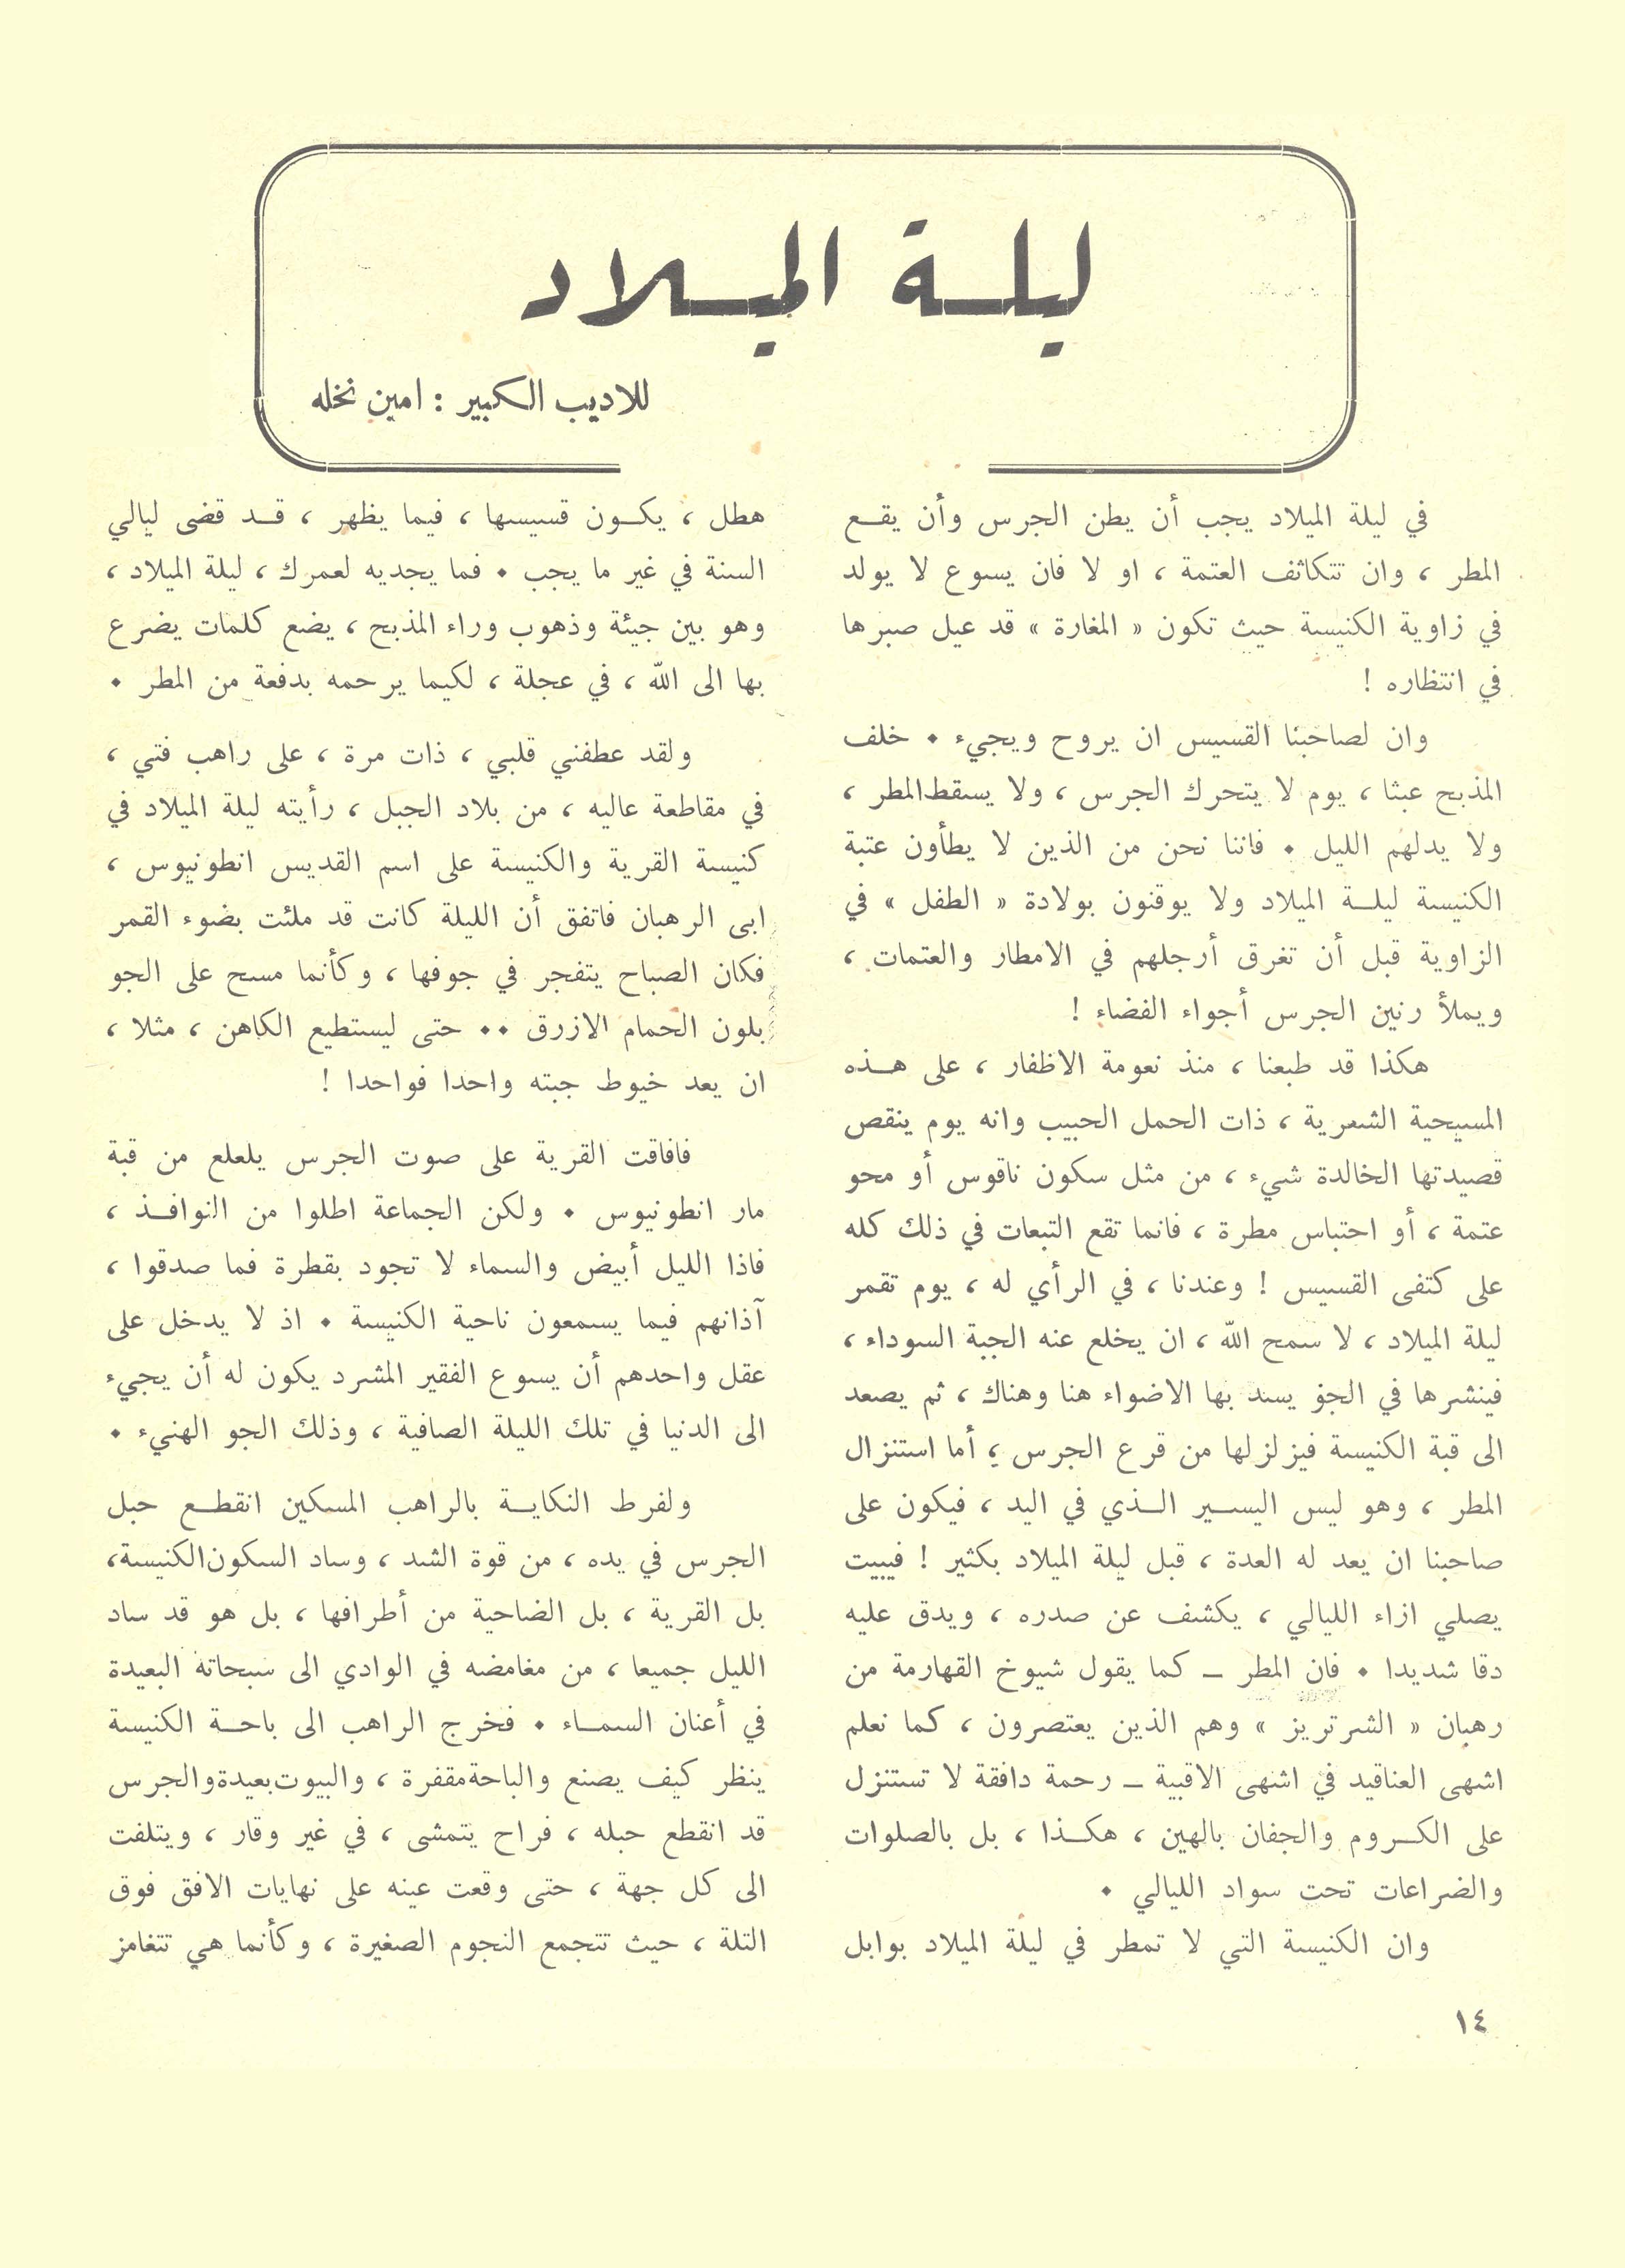 ليلة الميلاد
للاديب الكبير : امين نخله
في ليلة الميلاد يجب أن يطن الجرس وأن يقع
المطر ، وان تتكاثف العتمة ، او لا فان يسوع لا يولد
في زاوية الكنيسة حيث تكون « المغارة » قد عيل صبرها
في انتظاره !
وان لصاحبنا القسيس ان يروح ويجيء . خلف
المذبح عبثا ، يوم لا يتحرك الجرس ، ولا يسقط المطر ،
ولا يدلهم الليل . فاننا نحن من الذين لا يطأون عتبة
الكنيسة ليلة الميلاد ولا يوقنون بولادة « الطفل » في
الزاوية قبل أن تغرق أرجلهم في الامطار والعتمات ،
ويملأ رنين الجرس أجواء الفضاء !
هكذا قد طبعنا ، منذ نعومة الاظفار ، على هذه
المسيحية الشعرية ، ذات الحمل الحبيب وانه يوم ينقص
قصيدتها الخالدة شيء ، من مثل سكون ناقوس أو محو
عتمة ، أو احتباس مطرة ، فانما تقع التبعات في ذلك كله
على كتفى القسيس ! وعندنا ، في الرأي له ، يوم تقمر
ليلة الميلاد ، لا سمح الله ، ان يخلع عنه الجبة السوداء ،
فينشرها في الجو يسد بها الاضواء هنا وهناك ، ثم يصعد
الى قبة الكنيسة فيزلزلها من قرع الجرس ؛ أما استنزال
المطر ، وهو ليس اليسير الذي في اليد ، فيكون على
صاحبنا ان يعد له العدة ، قبل ليلة الميلاد بكثير ! فيبيت
يصلي ازاء الليالي ، يكشف عن صدره ، ويدق عليه
دقا شديدا . فان المطر ـ كما يقول شيوخ القهارمة من
رهبان « الشرتريز » وهم الذين يعتصرون ، كما نعلم
اشهى العناقيد في اشهى الاقبية ـ رحمة دافقة لا تستنزل
على الكروم والجفان بالهين ، هكذا ، بل بالصلوات
والضراعات تحت سواد الليالي .
وان الكنيسة التي لا تمطر في ليلة الميلاد بوابل
هطل ، يكون قسيسها ، فيما يظهر ، قد قضى ليالي
السنة في غير ما يجب . فما يجديه لعمرك ، ليلة الميلاد ،
وهو بين جيئة وذهوب وراء المذبح ، يضع كلمات يضرع
بها الى الله ، في عجلة ، لكيما يرحمه بدفعة من المطر .
ولقد عطفني قلبي ، ذات مرة ، على راهب فتي ،
في مقاطعة عاليه ، من بلاد الجبل ، رأيته ليلة الميلاد في
كنيسة القرية والكنيسة على اسم القديس انطونيوس ،
ابى الرهبان فاتفق أن الليلة كانت قد ملئت بضوء القمر
فكان الصباح يتفجر في جوفها ، وكأنما مسح على الجو
بلون الحمام الازرق .. حتى ليستطيع الكاهن ، مثلا ،
ان يعد خيوط جبته واحدا فواحدا !
فافاقت القرية على صوت الجرس يلعلع من قبة
مار انطونيوس . ولكن الجماعة اطلوا من النوافذ ،
فاذا الليل أبيض والسماء لا تجود بقطرة فما صدقوا ،
آذانهم فيما يسمعون ناحية الكنيسة . اذ لا يدخل على
عقل واحدهم أن يسوع الفقير المشرد يكون له أن يجيء
الى الدنيا في تلك الليلة الصافية ، وذلك الجو الهنيء .
ولفرط النكاية بالراهب المسكين انقطع حبل
الجرس في يده ، من قوة الشد ، وساد السكون الكنيسة،
بل القرية ، بل الضاحية من أطرافها ، بل هو قد ساد
الليل جميعا ، من مغامضه في الوادي الى سبحاته البعيدة
في أعنان السماء . فخرج الراهب الى باحة الكنيسة
ينظر كيف يصنع والباحة مقفرة ، والبيوت بعيدة والجرس
قد انقطع حبله ، فراح يتمشى ، في غير وقار ، ويتلفت
الى كل جهة ، حتى وقعت عينه على نهايات الافق فوق
التلة ، حيث تتجمع النجوم الصغيرة ، وكأنما هي تتغامز
١٤